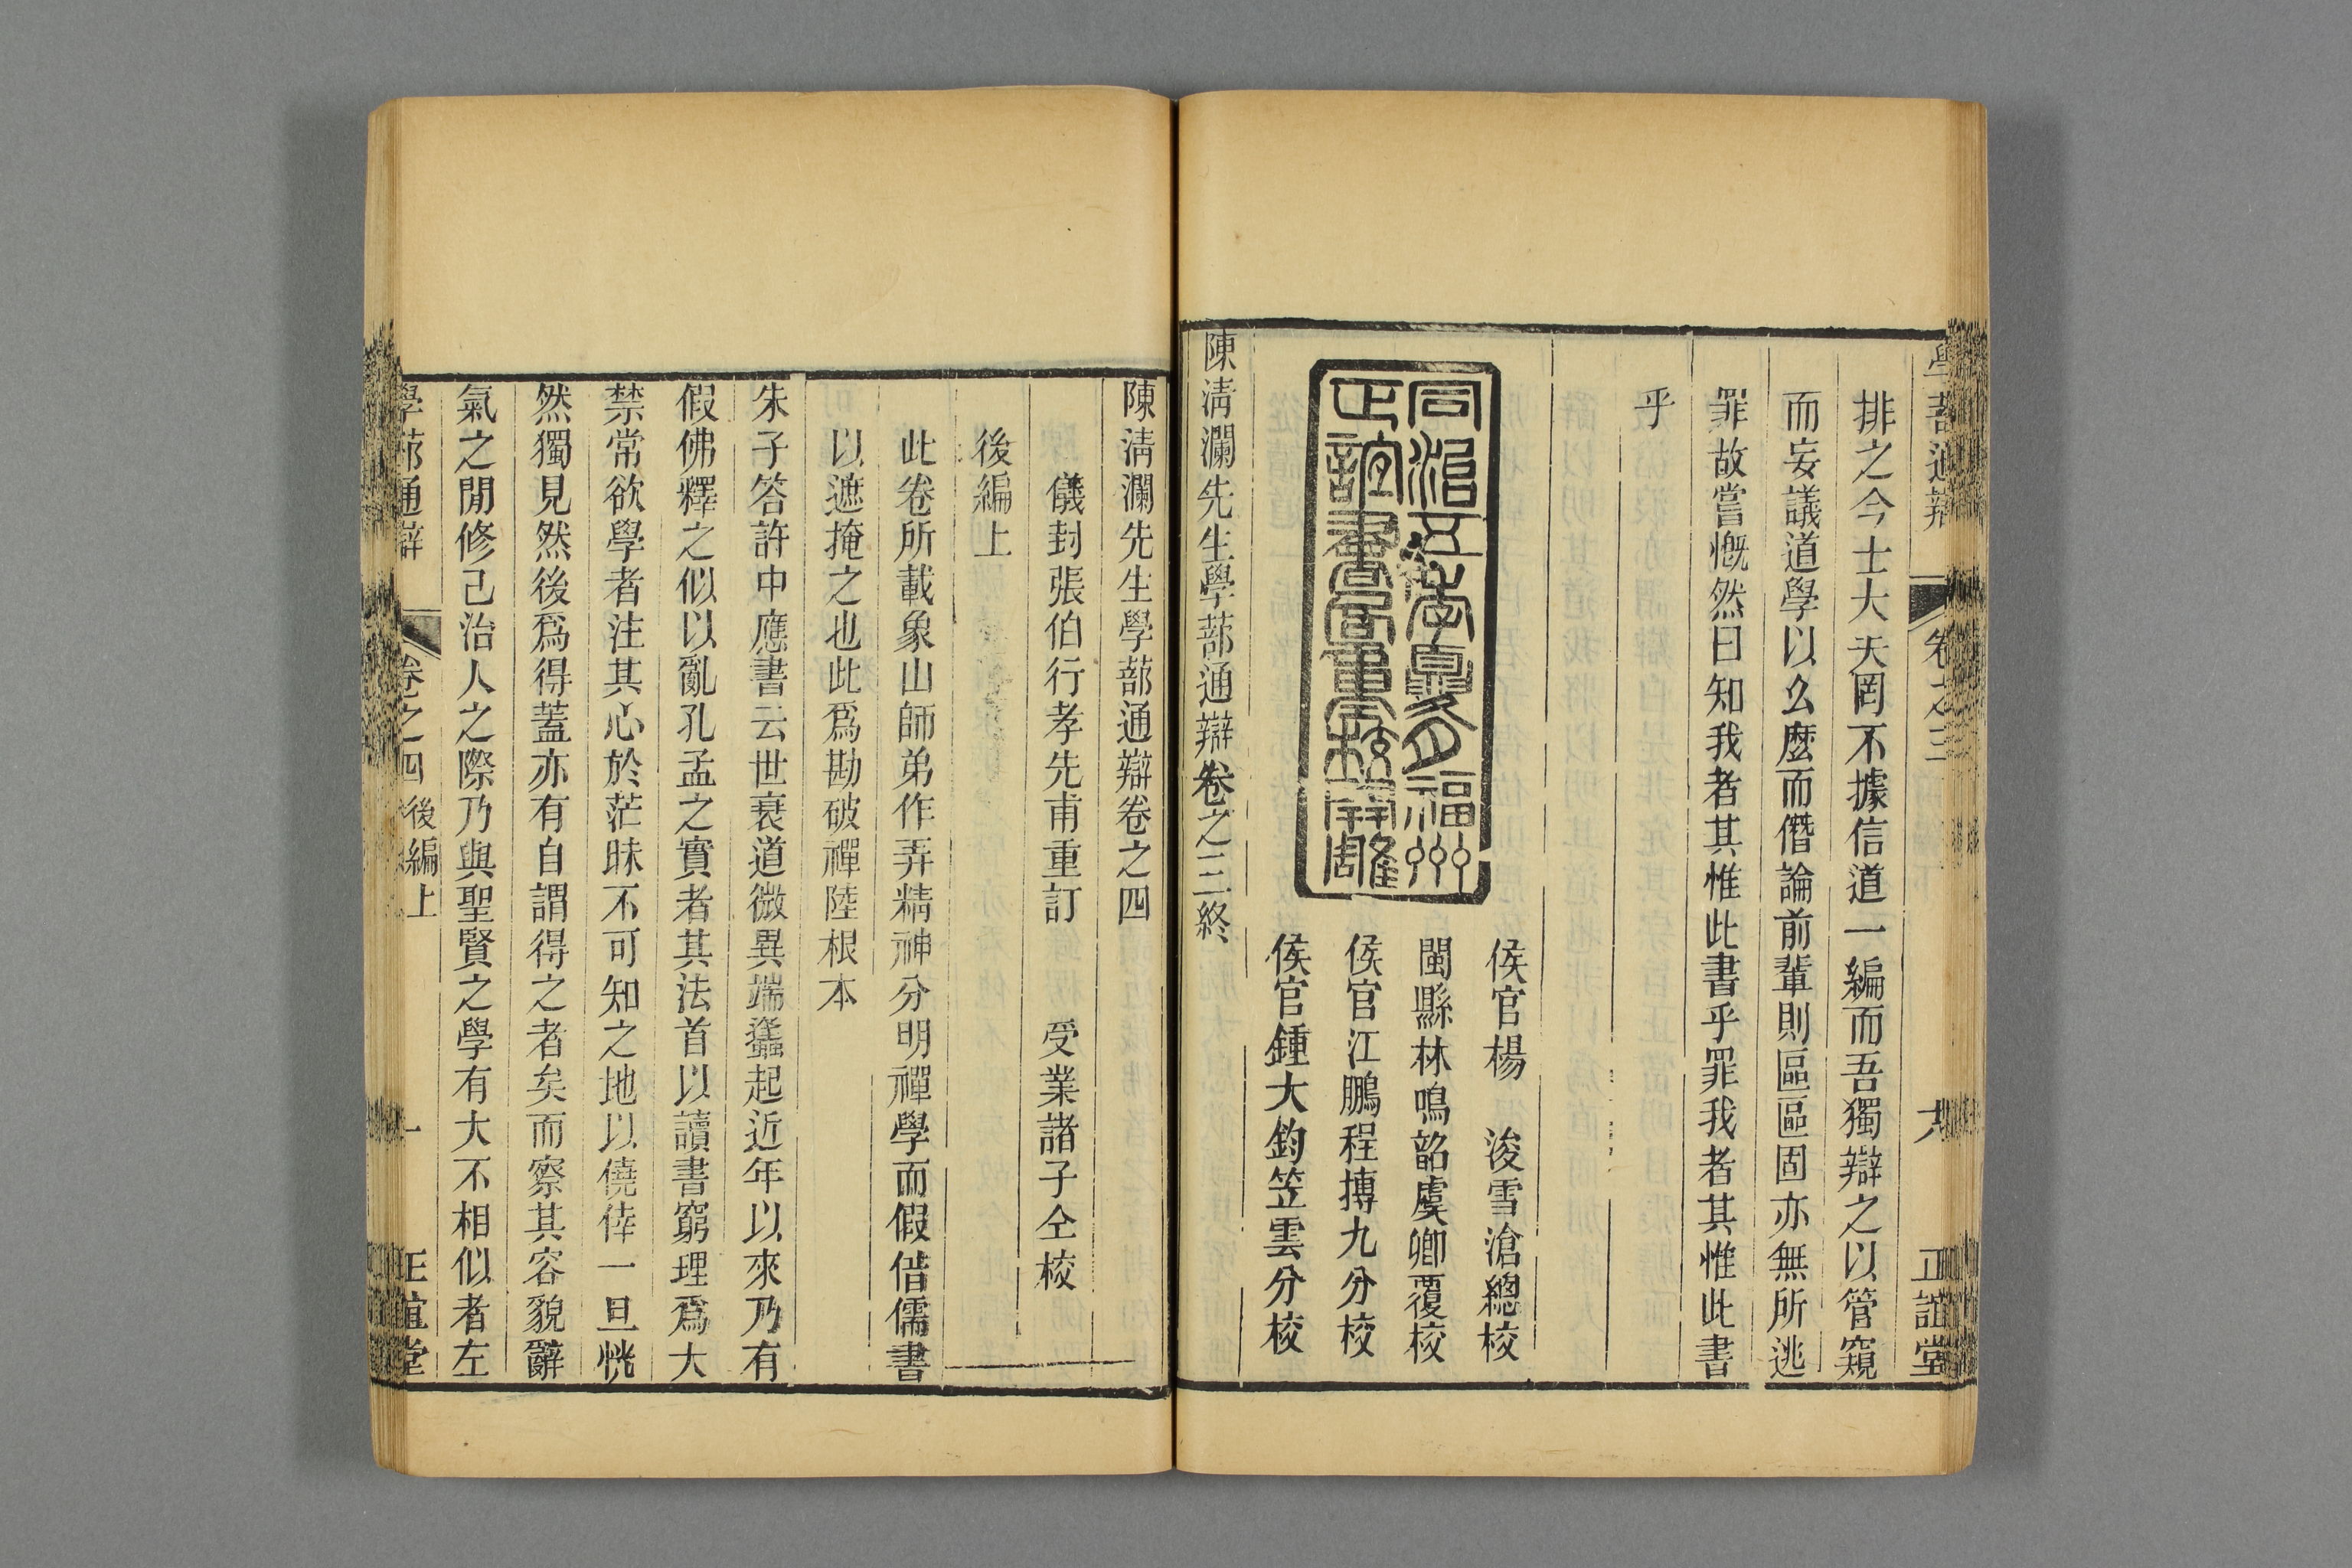 學蔀通辯 卷之三 六 正誼堂
排之今士大夫罔不據信道一編而吾獨辯之以管窺
而妄議道學以么麼而僭論前輩則區區固亦無所逃
罪故嘗慨然曰知我者其惟此書乎罪我者其惟此書
乎
侯官楊 浚雪滄總校
同治五年夏月福州
正誼書局重校開雕
閩縣林鳴韶虞卿覆校
侯官江鵬程摶九分校
侯官鍾大鈞笠雲分校
陳清瀾先生學蔀通辯卷之三終
陳清瀾先生學蔀通辯卷之四
儀封張伯行孝先甫重訂 受業諸子仝校
後編上
此卷所載象山師弟作弄精神分明禪學而假借儒書
以遮掩之也此爲勘破禪陸根本
朱子答許中應書云世衰道微異端蠭起近年以來乃有
假佛釋之似以亂孔孟之實者其法首以讀書窮理爲大
禁常欲學者注其心於茫昧不可知之地以僥倖一旦恍
然獨見然後爲得蓋亦有自謂得之者矣而察其容貌辭
氣之閒修己治人之際乃與聖賢之學有大不相似者左
學蔀通辯 卷之四 後編上 一 正誼堂